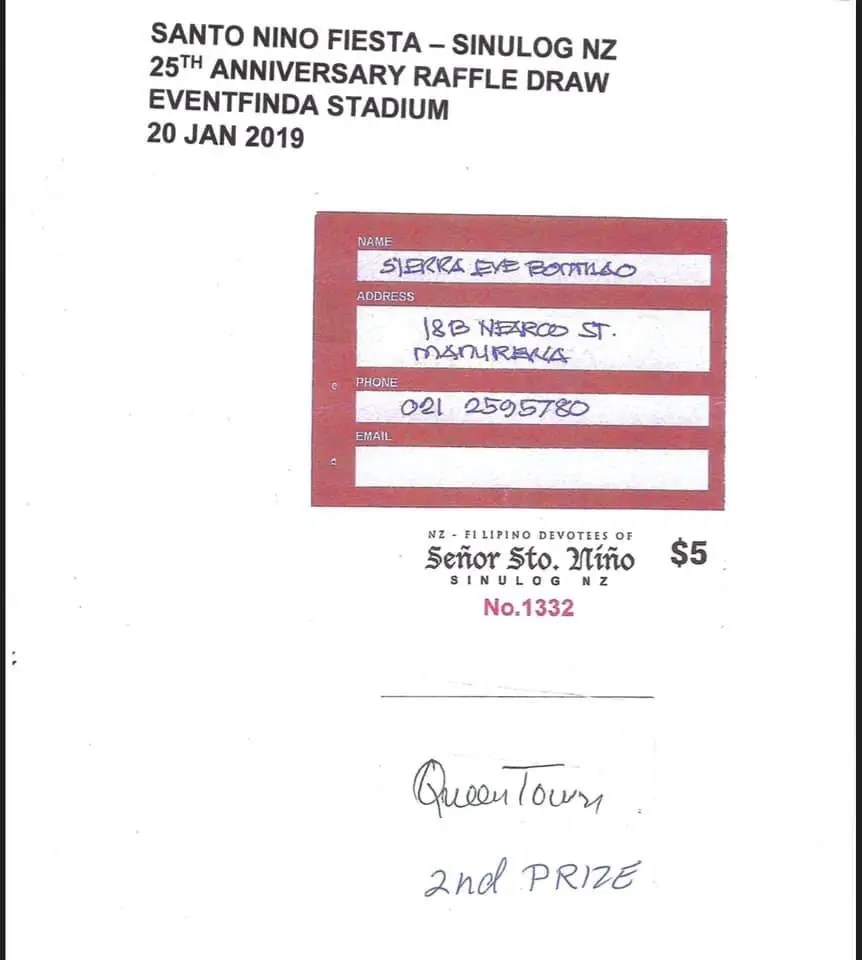 SANTO NINO FIESTA – SINULOG NZ
25TH ANNIVERSARY RAFFLE DRAW
EVENTFINDA STADIUM
20 JAN 2019
NAME
SIERRA EVE
ADDRESS
18B NEARCO ST.
MANUREWA
PHONE
021 2595780
EMAIL
NZ - FILIPINO DEVOTEES OF
Señor Sto. Niño $5
SINULOG NZ
No.1332
QueenTown
2nd PRIZE